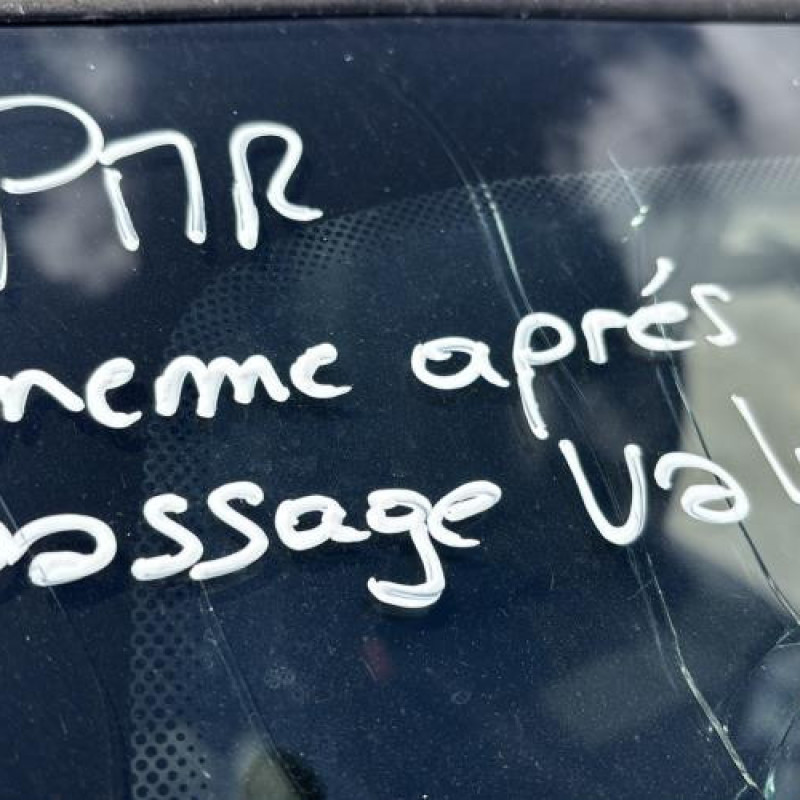 PMR
meme aprés
passage Val